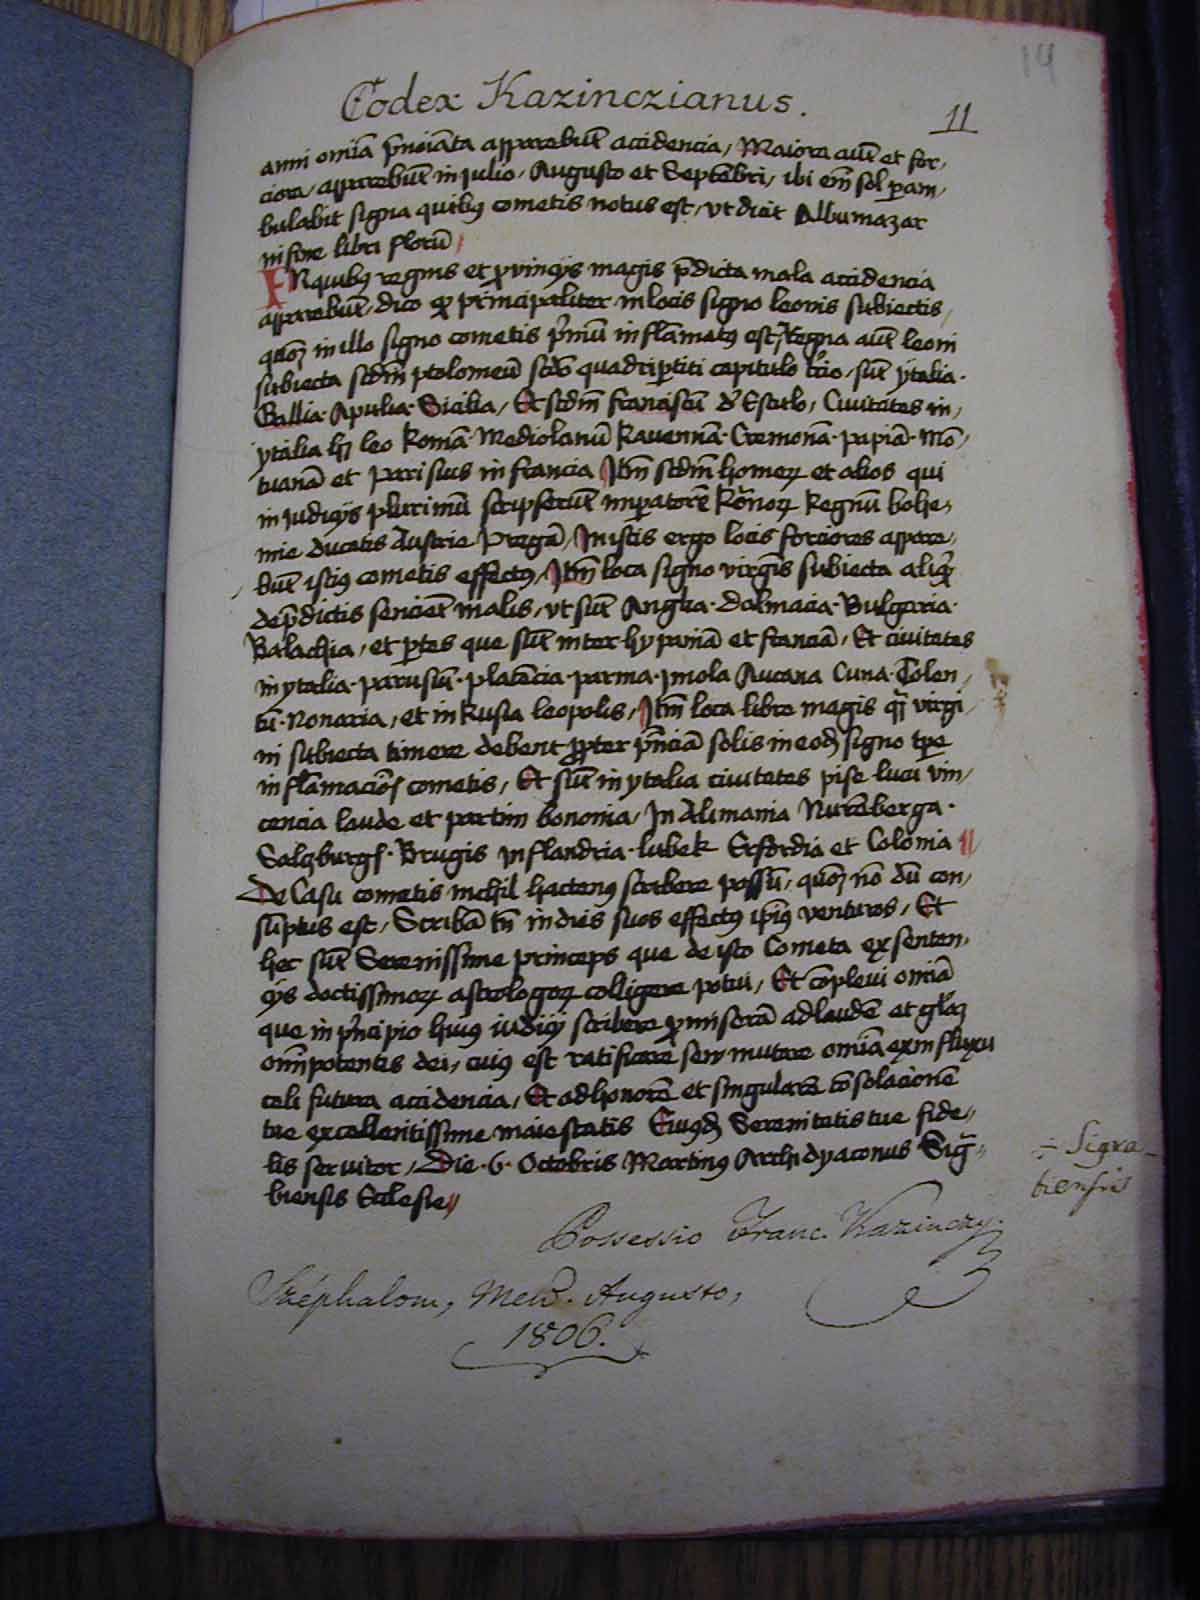 14
Codex Kazinczianus.
11
anni om̄ia p̄nc̄iata apparebūt accidencia, Maiora aūt et for,
ciora, apparebūt in Julio, Augusto et Septēbri, ibi em̄ sol pam,
bulabit signa quibꝰ cometis notus est, vt dicit Albumazar
in fine libri florū
IN quibꝰ regnis et ꝓvincijs magis p̄dicta mala accidencia
apparebūt, dico ꝙ principaliter in locis signo leonis subiectis,
qm̄ in illo signo cometis p̄mū inflāmatꝰ est, Regna aūt leoni
subiecta scdm̄ ptolomeū scd̄o quadripartiti capitulo t̄cio, sūt ytalia.
Gallia. Apulia. Sicilia, Et scdm̄ franciscū d̄ Esculo, Ciuitates in,
ytalia hꝫ leo Romā. Mediolanū Ravennā. Cremonā. papiā. Mā,
tuanā et Parisius in francia Itm̄ scdm̄ homerꝝ et alios qui
in judicijs plurimū scripserūt impatorē Rōnorꝝ Regnū bohe,
mie ducatis Austrie Pragā, In istis ergo locis forciores appare,
būt istiꝰ cometis effectꝰ, Itm̄ loca signo virginis subiecta aliqꝫ
de p̄dictis sencient malis, vt sūt Anglia. Dalmacia. Bulgaria.
Balachia, et ptes que sūt inter hyspaniā et franciā, Et ciuitates
in ytalia. parusiū. platēcia. parma. ymola Aucana Cuna. Tolen,
tū. Nonaria, et in Rusia leopolis, Itm̄ loca libre magis qꝫ virgi,
ni subiecta timere debent ꝓpter p̄nciā solis in eod̄ signo tpe
inflāmaciōis cometis, Et sūt in ytalia ciuitates pise luca vin,
cencia laude et partim bononia, In Alimania Nurēberga.
Salzburgꝭ. Brugis in flandria. lubek Erfordia et Colonia
De Casu cometis nichil hactenꝰ scribere possū, qm̄ nō dū con,
sūptus est, Scribā tn̄ in dies suos effectꝰ ipiꝰ venturos, Et
hec sūt Serenissime princeps que de isto Cometa ex senten,
cijs doctissimorꝝ astrologorꝝ colligere potui, Et cōplevi om̄ia
que in p̄ncipio huiꝰ iudicij scribere ꝓmiserā ad laudē et gl̄iaꝫ
om̄ipotentis dei, cuiꝰ est ratificare seu mutare om̄ia ex influxu
celi futura accidencia, Et ad honorē et singularē cōsolacionē
tue excellentissime maiestatis Eiusd̄ Serenitatis tue fide,
lis servitor, Die. 6. Octobris Martinꝰ Archidyaconus Sig̃-
biensis Ecclesie
÷ Sigza-
biensis
Possessio Franc. Kazinczy.
Széphalom, Men. Augusto,
1806.